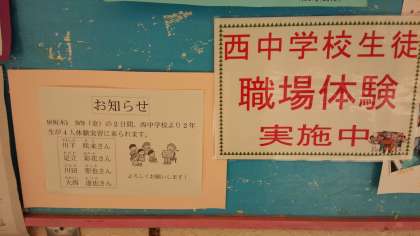 お知らせ
(金)の2日間、西中学校より2年
生が4人体験実習に来られます。
川下
さん
足立 彩花さん
川田
さん
大西
さん
よろしくお願いします!
西中学校生徒
職場体験
実施中